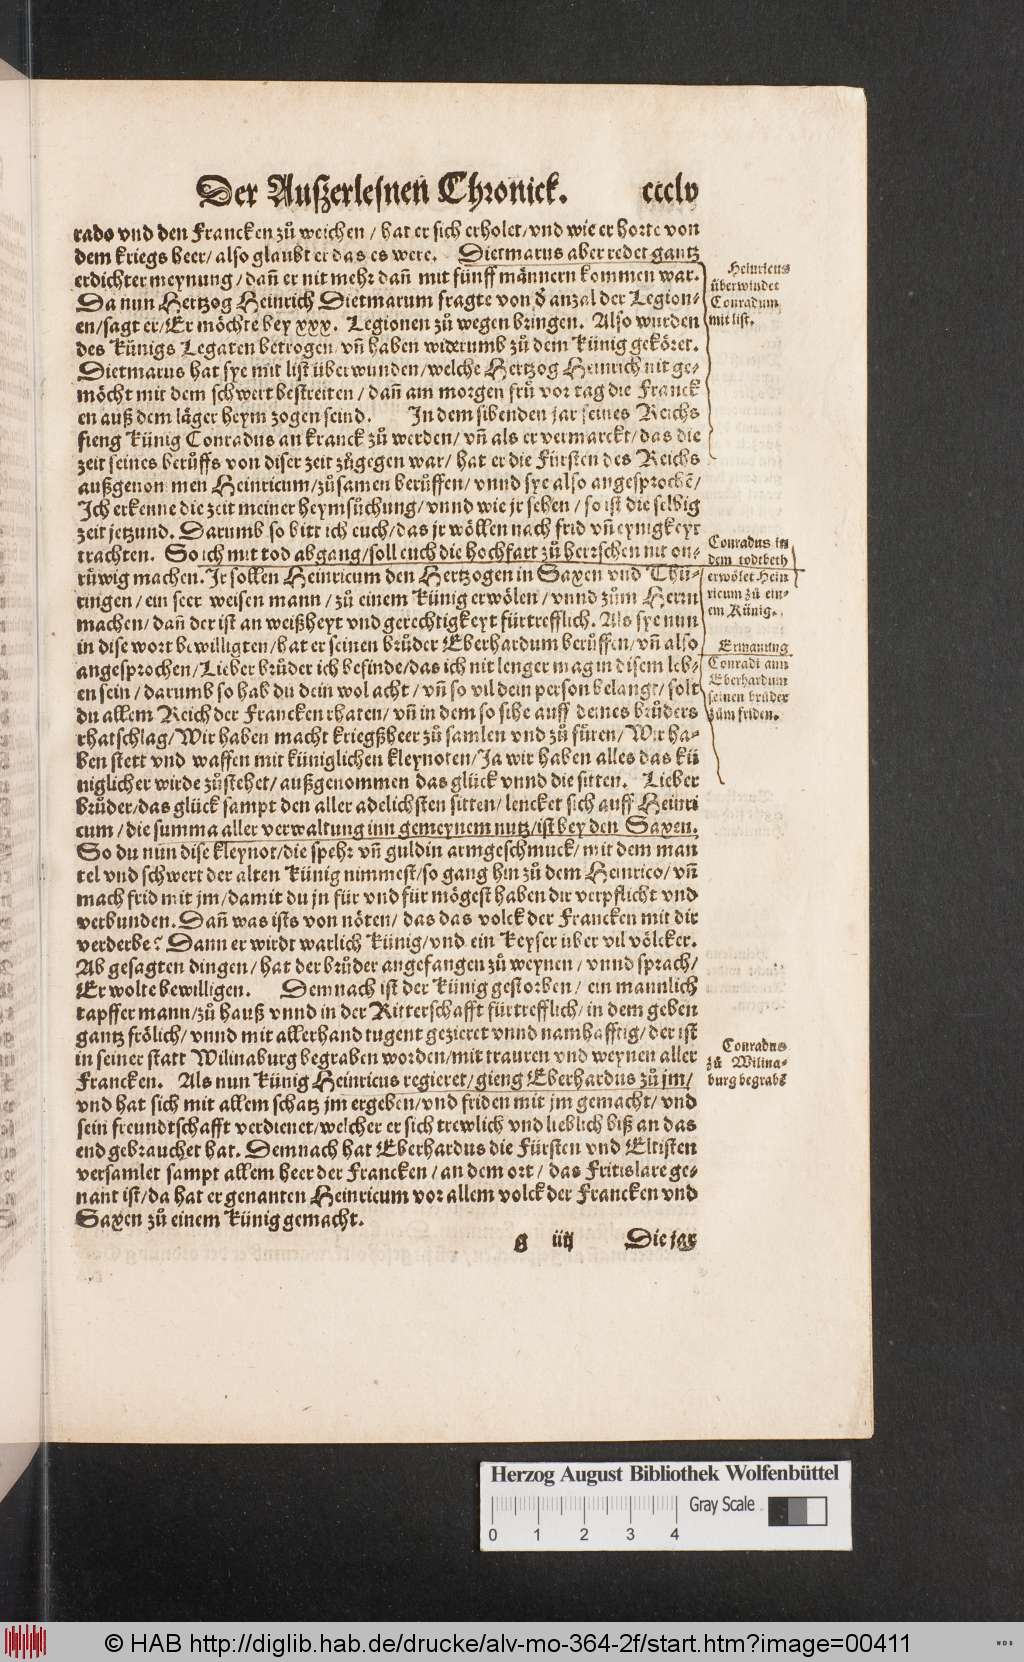 Der Außerlesnen Chronick. ccclv
rado vnd den Francken zů weichen / hat er sich erholet / vnd wie er horte von
dem kriegs heer / also glaubt er das es were. Dietmarus aber redet gantz
erdichter meynung / dañ er nit mehr dañ mit fünff männern kommen war.
Da nun Hertzog Heinrich Dietmarum fragte von d̕ anzal der Legion-
en / sagt er / Er möchte bey xxx. Legionen zů wegen bringen. Also wurden
des Künigs Legaten betrogen / vñ haben widerumb zů dem Künig gekõret.
Dietmarus hat sye mit list überwunden / welche Hertzog Heinrich nit ge-
möcht mit dem schwert bestreiten / dañ am morgen frů vor tag die Franck
en auß dem läger heym zogen seind. In dem sibenden jar seines Reichs
fieng Künig Conradus an kranck zů werden / vñ als er vermarckt / das die
zeit seines berůffs von diser zeit zůgegen war / hat er die Fürsten des Reichs
außgenommen Heinricum / zůsamen berůffen / vnnd sye also angesprochẽ /
Ich erkenne die zeit meiner heymsůchung / vnnd wie jr sehen / so ist die selbig
zeit jetzund. Darumb so bitt ich euch / das jr wöllen nach frid vñ eynigkeyt
trachten. So ich mit tod abgang / soll euch die hochfart zů herrschen nit on-
růwig machen. Ir sollen Heinricum den Hertzogen in Saxen vnd Thü-
ringen / ein seer weisen mann / zů einem Künig erwölen / vnnd zům Herrn
machen / dañ der ist an weißheyt vnd gerechtigkeyt fürtrefflich. Als sye nun
in dise wort bewilligten / hat er seinen brůder Eberhardum berůffen / vñ also
angesprochen / Lieber brůder ich befinde / das ich nit lenger mag in disem leb-
en sein / darumb so hab du dein wol acht / vñ so vil dein person belangt / solt
du allem Reich der Francken rhaten / vñ in dem so sihe auff deines brůders
rhatschlag / Wir haben macht kriegßheer zů samlen vnd zů fůren / Wir ha-
ben stett vnd waffen mit küniglichen kleynoten / Ja wir haben alles das kü
niglicher wirde zůstehet / außgenommen das glück vnnd die sitten. Lieber
brůder / das glück sampt den aller adelichsten sitten / lencket sich auff Heinri
cum / die summa aller verwaltung inn gemeynem nutz / ist bey den Saxen.
So du nun dise kleynot / die spehr vñ guldin armgeschmuck / mit dem man
tel vnd schwert der alten Künig nimmest / so gang hin zů dem Heinrico / vñ
mach frid mit jm / damit du jn für vnd für mögest haben dir verpflicht vnd
verbunden. Dañ was ists von nöten / das das volck der Francken mit dir
verderbe? Dann er wirdt warlich Künig / vnd ein Keyser über vil völcker.
Ab gesagten dingen / hat der brůder angefangen zů weynen / vnnd sprach /
Er wolte bewilligen. Demnach ist der Künig gestorben / ein mannlich
tapffer mann / zů hauß vnnd in der Ritterschafft fürtrefflich / in dem geben
gantz frölich / vnnd mit allerhand tugent gezieret vnnd namhafftig / der ist
in seiner statt Wilinaburg begraben worden / mit trauren vnd weynen aller
Francken. Als nun Künig Heinricus regieret / gieng Eberhardus zů jm /
vnd hat sich mit allem schatz jm ergeben / vnd friden mit jm gemacht / vnd
sein freundtschafft verdienet / welcher er sich trewlich vnd lieblich biß an das
end gebrauchet hat. Demnach hat Eberhardus die Fürsten vnd Eltisten
versamlet sampt allem heer der Francken / an dem ort / das Fritislare ge-
nant ist / da hat er genanten Heinricum vor allem volck der Francken vnd
Saxen zů einem Künig gemacht.
g iiij Die jar
Heinricus
überwindet
Conradum
mit list.
Conradus in
dem todtbeth
erwölet Hein
ricum zů ein-
em Künig.
Ermanung
Conradi ann
Eberhardum
seinen brůder
zům friden.
Conradus
zů Wilina-
burg begrabẽ
Herzog August Bibliothek Wolfenbüttel
Gray Scale
0 1 2 3 4
© HAB http://diglib.hab.de/drucke/alv-mo-364-2f/start.htm?image=00411